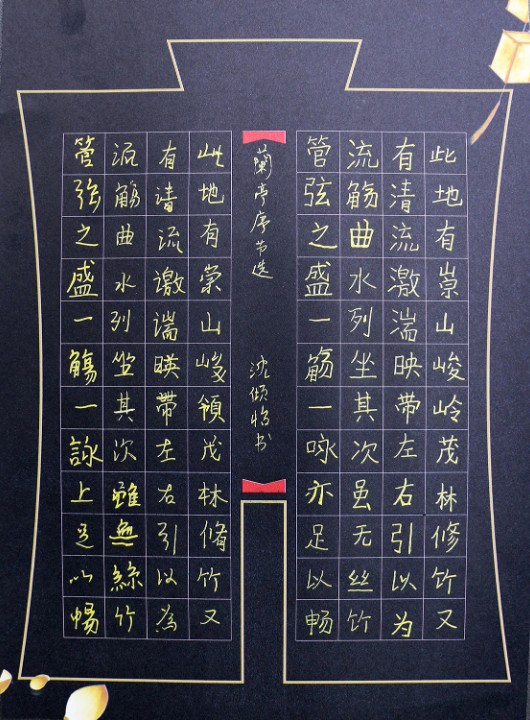 此地有崇山峻岭茂林修竹又
有清流激湍映带左右引以为
流觞曲水列坐其次虽无丝竹
管弦之盛一觞一咏亦足以畅
蘭亭序节选
沈倾怡书
此地有崇山峻領茂林脩竹又
有清流激湍暎帶左右引以為
流觴曲水列坐其次雖無絲竹
管弦之盛一觴一詠上足以暢